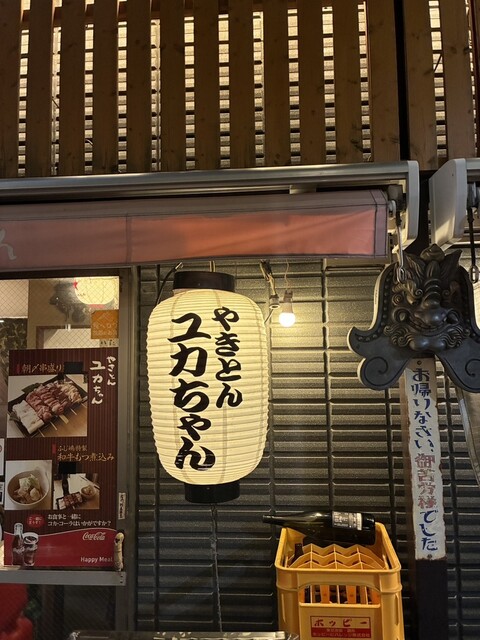 やきとん
ユカちゃん
やきとん
ユカちゃん
朝〆串盛り
ふじ嶋特製
和牛もつ煮込み
お食事と一緒に
コカ・コーラはいかがですか?
Coca-Cola
Happy Meal
ホッピー
お帰りなさい御苦労様でした